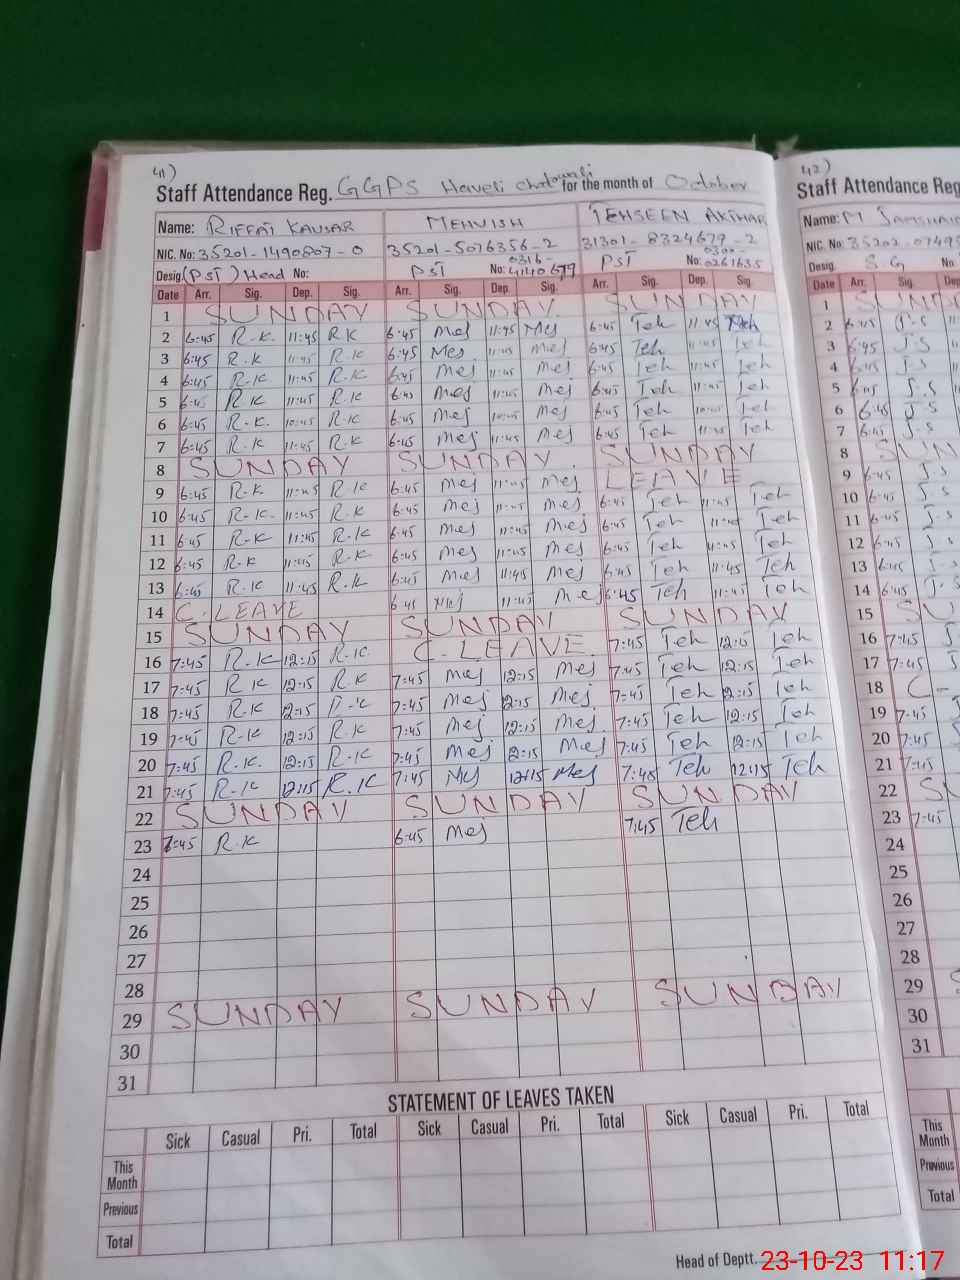 41)
Staff Attendance Reg. GGPS Haveli for the month of October
Name: RIFFAT KAUSAR MEHVISH TEHSEEN AKTHAR
NIC. No: 35201-1490807-0 35201-5076356-2 31301-8324679-2
Desig. (PST) Head No: PST No: 0316-4140677 PST No: 0300-0261635
Date Arr. Sig. Dep. Sig. Arr. Sig. Dep. Sig. Arr. Sig. Dep. Sig.
1 SUNDAY SUNDAY SUNDAY
2 6:45 R.K. 11:45 RK 6:45 Mej 11:45 Mej 6:45 Teh 11:45 Teh
3 6:45 R.K 11:45 R.K 6:45 Mej 11:45 Mej 6:45 Teh 11:45 Teh
4 6:45 R.K 11:45 R.K 6:45 Mej 11:45 Mej 6:45 Teh 11:45 Teh
5 6:45 R.K 11:45 R.K 6:45 Mej 11:45 Mej 6:45 Teh 11:45 Teh
6 6:45 R.K. 10:45 R.K 6:45 Mej 10:45 Mej 6:45 Teh 10:45 Teh
7 6:45 R.K 11:45 R.K 6:45 Mej 11:45 Mej 6:45 Teh 11:45 Teh
8 SUNDAY SUNDAY SUNDAY
9 6:45 R.K 11:45 R.K 6:45 Mej 11:45 Mej LEAVE
10 6:45 R.K. 11:45 R.K 6:45 Mej 11:45 Mej 6:45 Teh 11:45 Teh
11 6:45 R.K 11:45 R.K 6:45 Mej 11:45 Mej 6:45 Teh 11:45 Teh
12 6:45 R.K 11:45 R.K 6:45 Mej 11:45 Mej 6:45 Teh 11:45 Teh
13 6:45 R.K 11:45 R.K 6:45 Mej 11:45 Mej 6:45 Teh 11:45 Teh
14 C.LEAVE 6:45 Mej 11:45 Mej 6:45 Teh 11:45 Teh
15 SUNDAY SUNDAY SUNDAY
16 7:45 R.K 12:15 R.K C.LEAVE 7:45 Teh 12:15 Teh
17 7:45 R.K 12:15 R.K 7:45 Mej 12:15 Mej 7:45 Teh 12:15 Teh
18 7:45 R.K 12:15 R.K 7:45 Mej 12:15 Mej 7:45 Teh 12:15 Teh
19 7:45 R.K 12:15 R.K 7:45 Mej 12:15 Mej 7:45 Teh 12:15 Teh
20 7:45 R.K. 12:15 R.K 7:45 Mej 12:15 Mej 7:45 Teh 12:15 Teh
21 7:45 R.K 12:15 R.K 7:45 Mej 12:15 Mej 7:45 Teh 12:15 Teh
22 SUNDAY SUNDAY SUNDAY
23 7:45 R.K 6:45 Mej 7:45 Teh
24
25
26
27
28
29 SUNDAY SUNDAY SUNDAY
30
31
STATEMENT OF LEAVES TAKEN
Sick Casual Pri. Total Sick Casual Pri. Total Sick Casual Pri. Total
This Month
Previous
Total
Head of Deptt.
42)
Staff Attendance Reg
Name: M
NIC. No: 35202-0749
Desig. S.G No
Date Arr. Sig. Dep
1 SUND
2 6:45 J.S
3 6:45 J.S
4 6:45 J.S
5 6:45 J.S
6 6:45 J.S
7 6:45 J.S
8 SUN
9 6:45 J.S
10 6:45 J.S
11 6:45 J.S
12 6:45 J.S
13 6:45 J.S
14 6:45 J.S
15 SU
16 7:45
17 7:45
18 C-
19 7:45
20 7:45
21 7:45
22 SU
23 7:45
24
25
26
27
28
29 S
30
31
This Month
Previous
Total
23-10-23 11:17